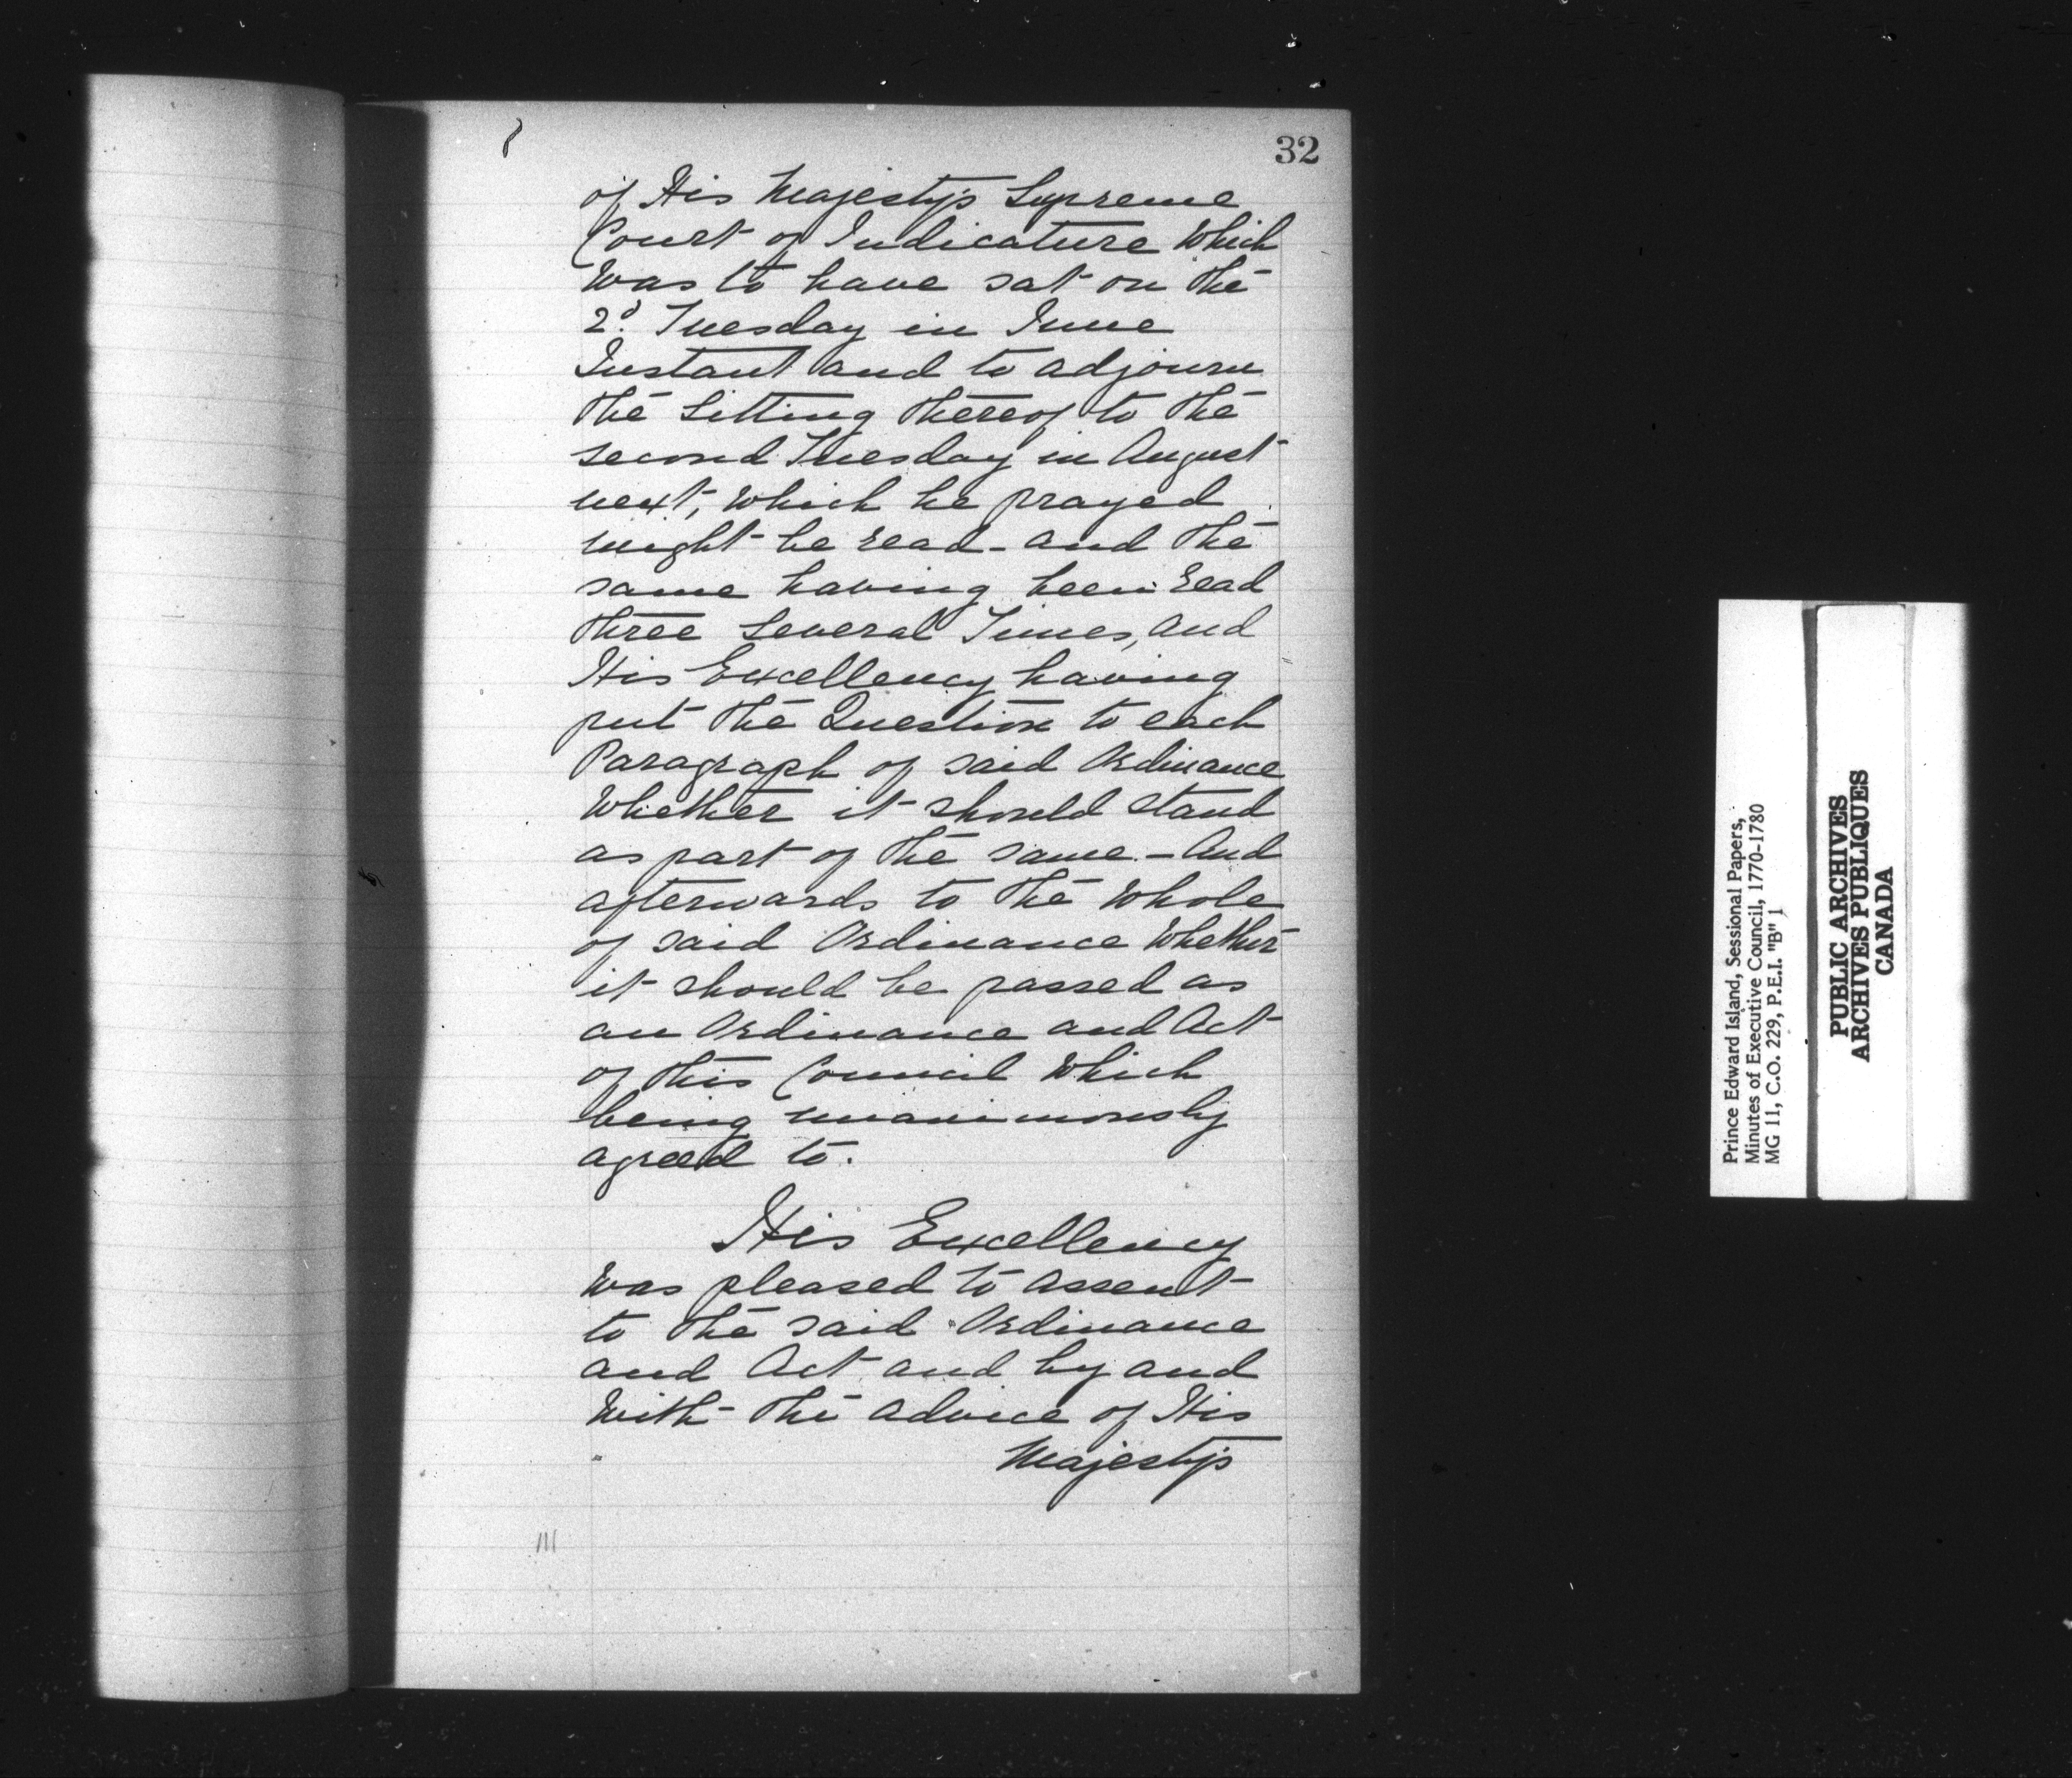 32
of His Majesty's Supreme
Court of Judicature Which
Was to have sat on the
2d. Tuesday in June
Instant and to adjourn
the Sitting thereof to the
second Tuesday in August
next, Which he prayed
might be read - and the
same having been read
three several Times, and
His Excellency having
put the Question to each
Paragraph of said Ordinance
Whether it should stand
as part of the same - And
afterwards to the Whole
of said Ordinance Whether
it should be passed as
an Ordinance and Act
of this Council Which
being unanimously
agreed to.
His Excellency
Was pleased to assent
to the said Ordinance
and Act and by and
With the advice of His
Majesty's
Prince Edward Island, Sessional Papers,
Minutes of Executive Council, 1770-1780
MG 11, C.O. 229, P.E.I. "B" 1
PUBLIC ARCHIVES
ARCHIVES PUBLIQUES
CANADA